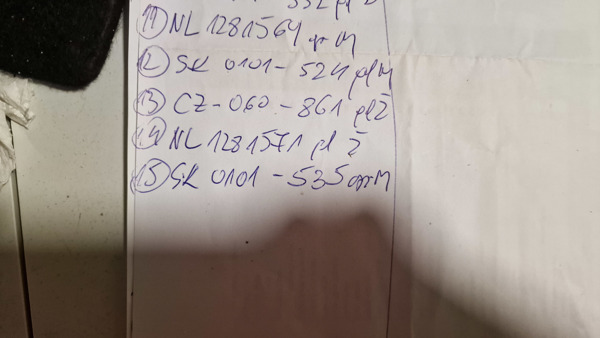 (11) NL 1281564 gr M
(12) SK 0101-524 pl M
(13) CZ-060-861 pl Ž
(14) NL 1281571 pl Ž
(15) SK 0101-535 M